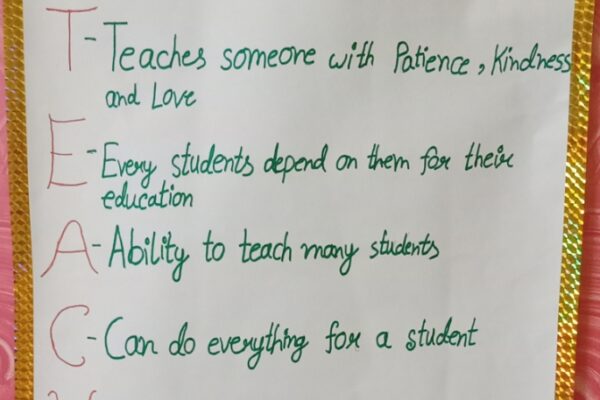 T- Teaches someone with Patience, Kindness
and Love
E- Every students depend on them for their
education
A- Ability to teach many students
C- Can do everything for a student